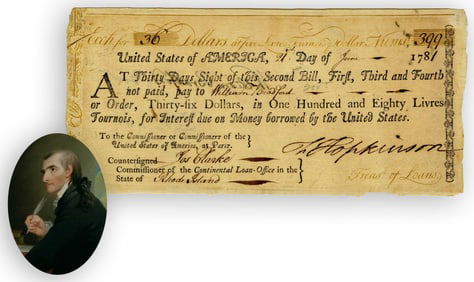 Each for 36 Dollars at five Livres Tournois p Dollar Num. 399
United States of AMERICA, Day of June 1781
AT Thirty Days Sight of this Second Bill, First, Third and Fourth
not paid, pay to William Bradford
or Order, Thirty-six Dollars, in One Hundred and Eighty Livres
Tournois, for Interest due on Money borrowed by the United States.
To the Commissioner or Commissioners of the
United States of America, at Paris.
Fs Hopkinson
Countersigned Jos Clarke
Commissioner of the Continental Loan-Office in the
State of Rhode Island
Treasr. of Loans